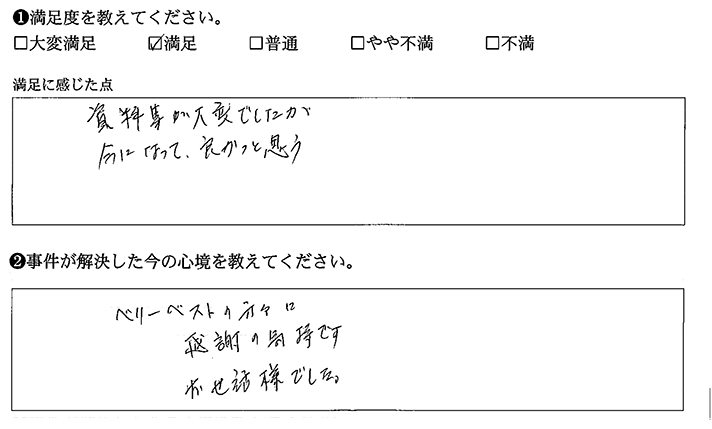 ❶満足度を教えてください。
□大変満足 ☑満足 □普通 □やや不満 □不満
満足に感じた点
資料集が大変でしたが
今になって、良かっと思う
❷事件が解決した今の心境を教えてください。
ベリーベストの方々に
感謝の気持です
おせ話様でした。